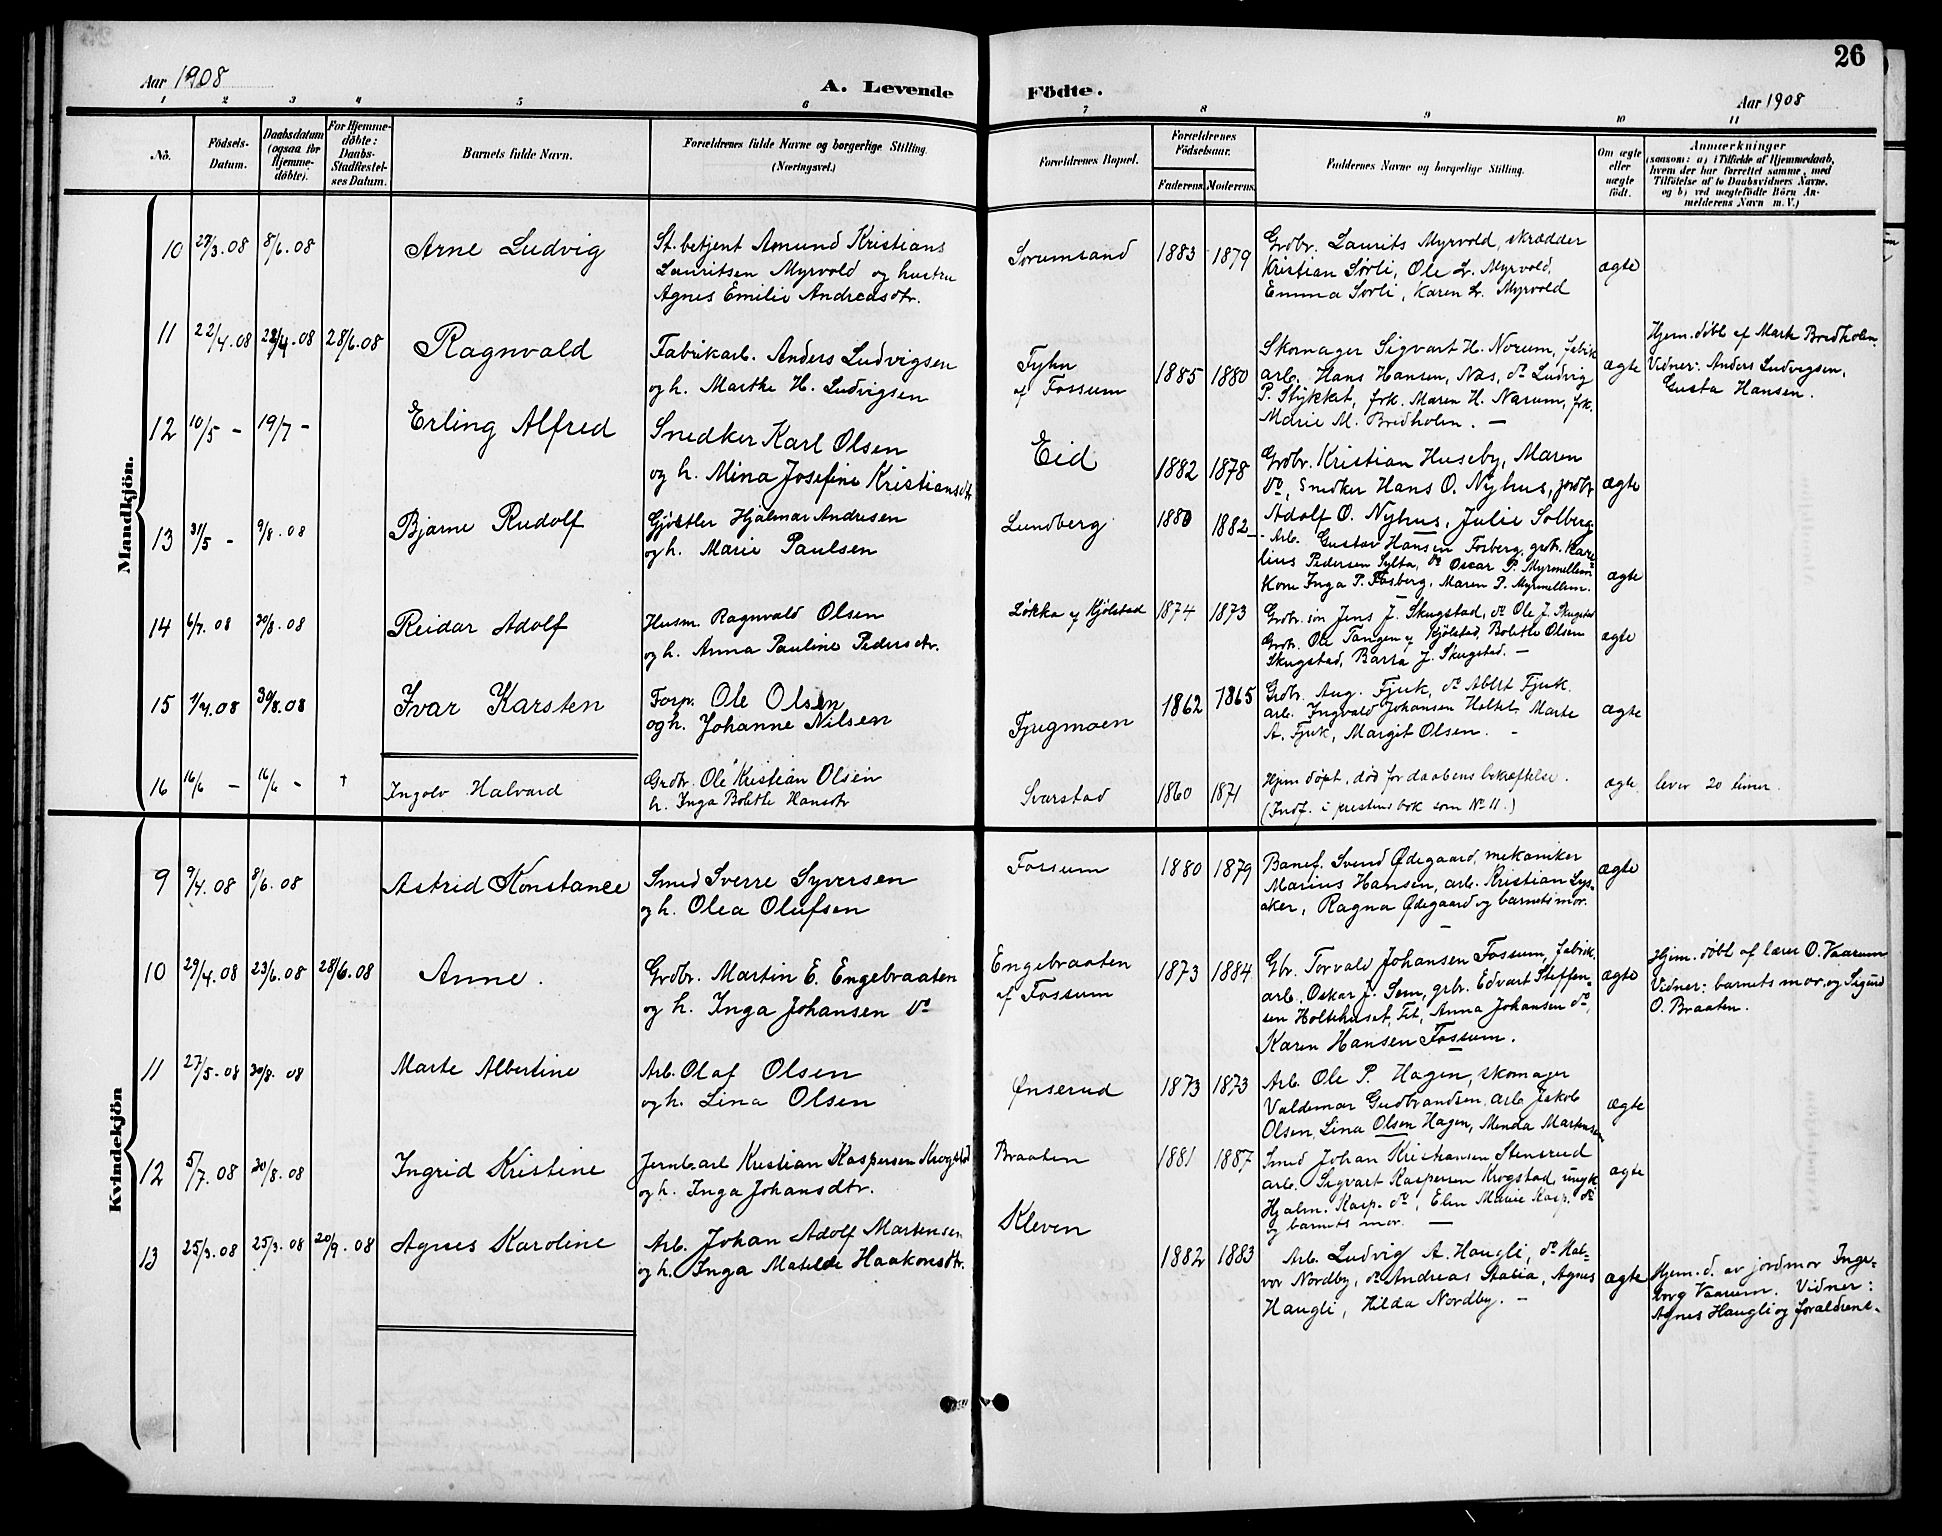 26
Aar 1908
A. Levende Födte.
Aar 1908
1 2 3 4 5 6 7 8 9 10 11
Nò.
Födsels-Datum.
Daabsdatum (ogsaa for Hjemme-döbte).
For Hjemme-döbte: Daabs-Stadfæstel-ses Datum.
Barnets fulde Navn.
Forældrenes fulde Navne og borgerlige Stilling.
(Næringsvei.)
Forældrenes Bopæl.
Forældrenes Födselsaar.
Faderens. Moderens.
Faddernes Navne og borgerlige Stilling.
Om ægte eller uægte födt.
Anmærkninger
(saasom: a) i Tilfælde af Hjemmedaab,
hvem der har forrettet samme, med
Tilföielse af to Daabsvidners Navne.
og b) ved uægtefödte Börn An-
melderens Navn m. V.)
Mandkjön.
10 27/3.08 8/6.08 Arne Ludvig
St.betjent Amund Kristians
Lauritsen Myrvold og hustru
Agnes Emilie Andreasdtr.
Sørumsand 1883 1879
Grdbr. Laurits Myrvold, skrædder
Kristian Sørli, Ole L. Myrvold,
Emma Sørli, Karen L. Myrvold
ægte
11 22/4.08 22/4.08 28/6.08 Ragnvald
Fabrikarb. Anders Ludvigsen
og h. Marthe H. Ludvigsen
Fyhn
af Fossum
1885 1880
Skomager Sigvart H. Norum, fabrik
arb. Hans Hansen, Næs, do Ludvig
P. Stykket, frk. Maren H. Narum, frk.
Marie M. Bredholen. —
ægte
Hjem.døbt af Marte Bredholen.
Vidner: Anders Ludvigsen,
Gusta Hansen.
12 10/5 – 19/7 – Erling Alfred
Snedker Karl Olsen
og h. Mina Josefine Kristiansdtr
Eid 1882 1878
Grdbr. Kristian Huseby, Maren
do, Snedker Hans O. Nyhus, jordbr
Adolf O. Nyhus, Julie Solberg
ægte
13 31/5 – 9/8.08 Bjarne Rudolf
Gjørtler Hjalmar Andresen
og h. Marie Paulsen
Lundberg 1880 1882
- Arb. Gustav Hansen Fosberg, grdbr. Kare-
lius Pedersen Sylta, do Oscar P. Myrmellem
Kone Inga P. Fosberg, Maren P. Myrmellem.
ægte
14 6/7.08 30/8.08 Reidar Adolf
Husm. Ragnvald Olsen
og h. Anna Pauline Pedersdtr.
Løkka af Kjølstad 1874 1873
Grdbr. søn Jens J. Skugstad, do Ole J. Skugstad
Grdbr. Ole Tangen af Kjølstad, Bolette Olsen
Skugstad, Barta J. Skugstad. –
ægte
15 1/4.08 30/8.08 Ivar Karsten
Forp. Ole Olsen
og h. Johanne Nilsen
Fjugmoen 1862 1865
Grdbr. Aug. Fjuk, do Ablet Fjuk.
arb. Ingvald Johansen Holtet, Marte
A. Fjuk, Margit Olsen. –
ægte
16 16/6 – 16/6 – † Ingolv Halvard
Grdbr. Ole Kristian Olsen
h. Inga Bolette Hansdtr
Svarstad 1860 1871
Hjemdøpt, død før daabens bekræftelse.
(Indf. i prestens bok som No 11.)
ægte
lever 20 timer.
Kvindekjön
9 9/4.08 8/6.08 Astrid Konstance
Smed Sverre Syversen
og h. Olea Olufsen
Fossum 1880 1879
Banef. Svend Ødegaard, mekaniker
Marius Hansen, arb. Kristian Lys-
aker, Ragna Ødegaard og barnets mor.
ægte
10 29/4.08 23/6.08 28/6.08 Anne.
Grdbr. Martin E. Engebraaten
og h. Inga Johansen do
Engebraaten
af Fossum
1873 1884
Gbr. Torvald Johansen Fossum, fabrik
arb. Oskar J. Sem, grbr. Edvart Steffen-
sen Holtehuset, Fet, Anna Johansen do,
Karen Hansen Fossum.
ægte
Hjem. døbt af lærer O. Vaarum
Vidner: barnets mor, og Sigurd
O. Braaten.
11 27/5.08 30/8.08 Marte Albertine
Arb. Olaf Olsen
og h. Lina Olsen
Ønserud 1873 1873
Arb. Ole P. Hagen, skomager
Valdemar Gudbrandsen, arb. Jakob
Olsen, Lina Olsen Hagen, Menda Martensen
ægte
12 5/7.08 30/8.08 Ingrid Kristine
Jernb.arb Kristian Kaspersen Krogstad
og h. Inga Johansdtr.
Braaten 1881 1887
Smed Johan Kristiansen Stenerud
arb. Sigvart Kaspersen Krogstad, ungk.
Hjalm. Kasp. do, Elen Marie Kasp. do
og barnets mor. —
ægte
13 25/3.08 25/3.08 20/9.08 Agnes Karoline
Arb. Johan Adolf Martensen
og h. Inga Matelde Haakonsdtr.
Kleven 1882 1883
Arb. Ludvig A. Haugli, do Hal-
vor Nordby, do Andreas Stalia, Agnes
Haugli, Hilda Nordby. –
ægte
Hjem. d. av jordmor Inge-
borg Vaarum. Vidner:
Agnes Haugli og forældrene.